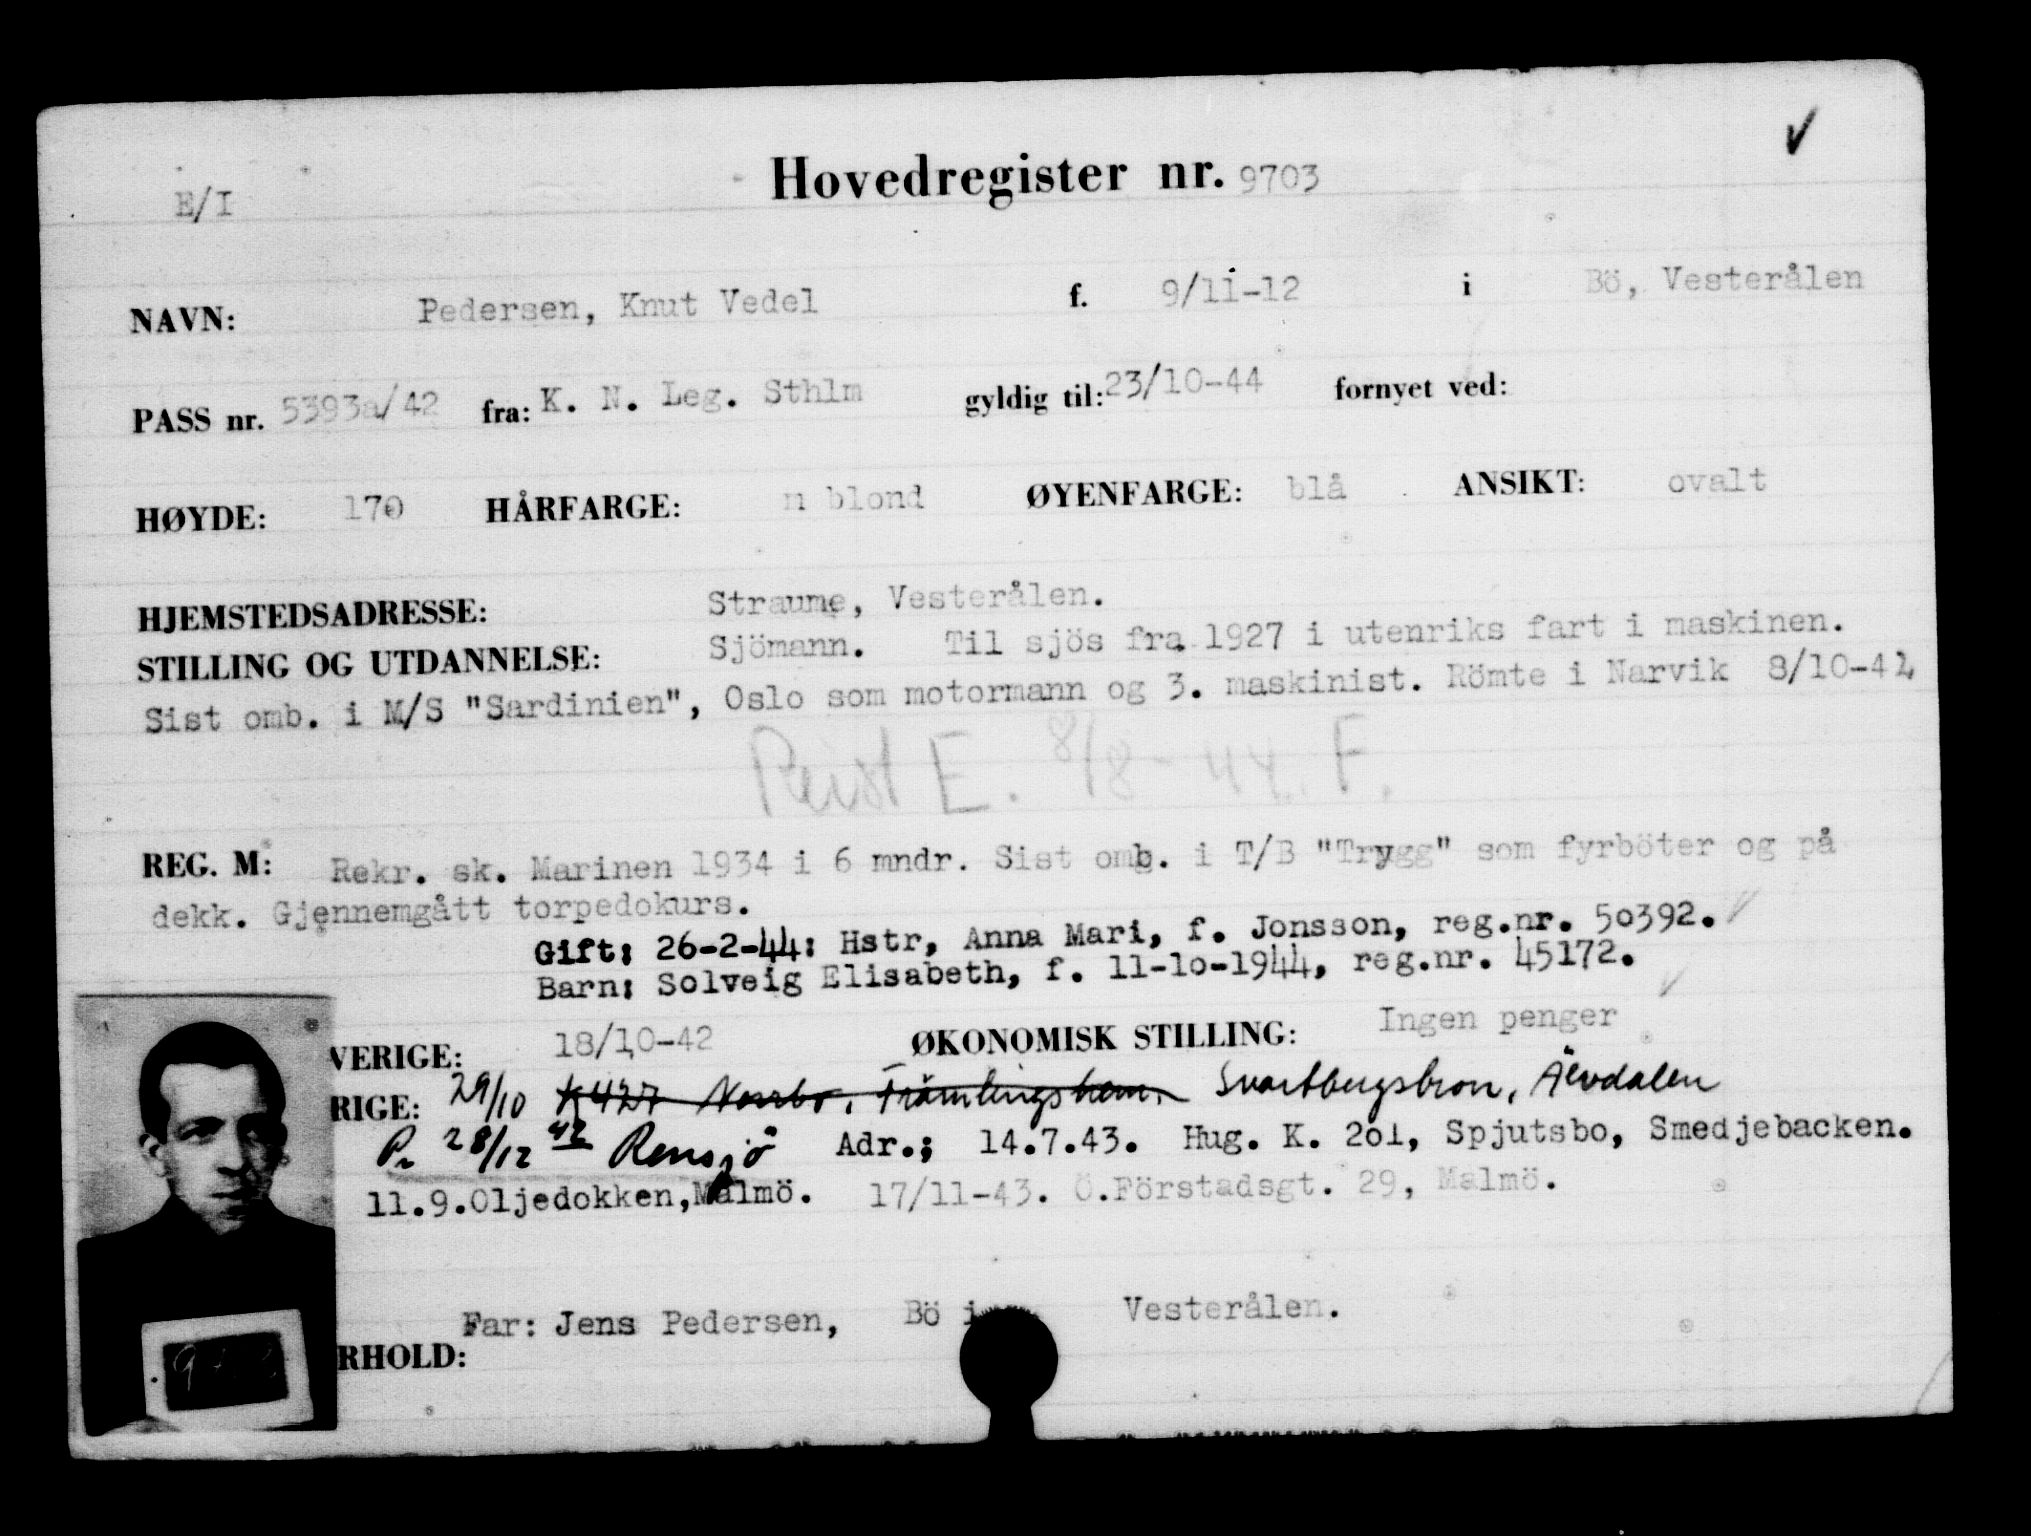 Hovedregister nr. 9703
E/I
NAVN: Pedersen, Knut Vedel f. 9/11-12 i Bö, Vesterålen
PASS nr. 5393a/42 fra: K. N. Leg. Sthlm gyldig til: 23/10-44 fornyet ved:
HØYDE: 170 HÅRFARGE: m blond ØYENFARGE: blå ANSIKT: ovalt
HJEMSTEDSADRESSE: Straume, Vesterålen.
STILLING OG UTDANNELSE: Sjömann. Til sjös fra 1927 i utenriks fart i maskinen.
Sist omb. i M/S "Sardinien", Oslo som motormann og 3. maskinist. Römte i Narvik 8/10-42
Reist E. 8/8-44. F.
REG. M: Rekr. sk. Marinen 1934 i 6 mndr. Sist omb. i T/B "Trygg" som fyrböter og på
dekk. Gjennemgått torpedokurs.
Gift: 26-2-44: Hstr, Anna Mari, f. Jonsson, reg.nr. 50392.
Barn: Solveig Elisabeth, f. 11-10-1944, reg.nr. 45172.
VERIGE: 18/10-42 ØKONOMISK STILLING: Ingen penger
RIGE: 29/10 K427 Norrbo, Främlingshem, Svartbergsbron, Älvdalen
28/12 42 Rensjö Adr.; 14.7.43. Hug. K. 201, Spjutsbo, Smedjebacken.
11.9.Oljedokken,Malmö. 17/11-43. Ö.Förstadsgt. 29, Malmö.
Far: Jens Pedersen, Bö i Vesterålen.
RHOLD: